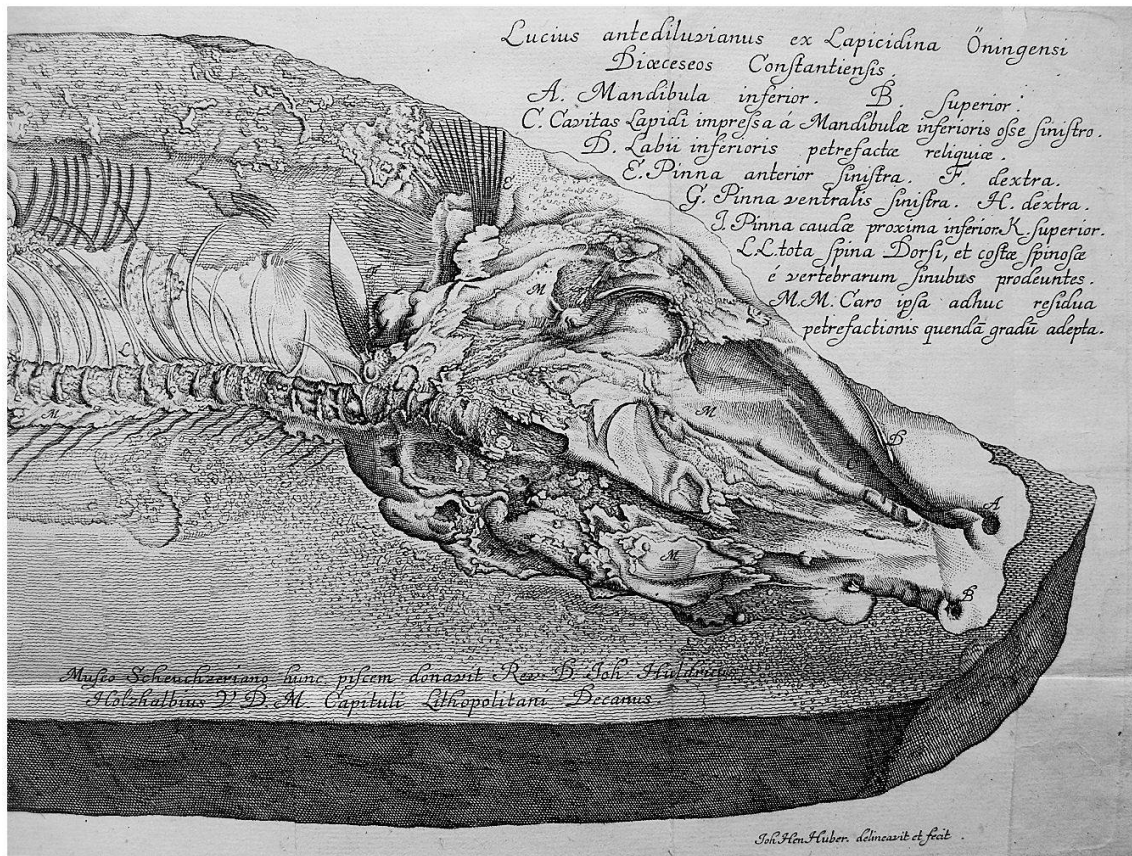 Lucius antediluvianus ex Lapicidina Öningensi
Diœceseos Constantiensis.
A. Mandibula inferior. B. superior.
C. Cavitas Lapidi impreſsa á Mandibulæ inferioris oſse ſiniſtro.
D. Labii inferioris petrefactæ reliquiæ.
E. Pinna anterior ſiniſtra. F. dextra.
G. Pinna ventralis ſiniſtra. H. dextra.
I. Pinna caudæ proxima inferior. K. ſuperior.
L.L. tota ſpina Dorſi, et coſtæ ſpinoſæ
é vertebrarum ſinubus prodeuntes.
M.M. Caro ipſa adhuc reſidua
petrefactionis quendã gradũ adepta.
E
M
M
M
B
A
M
M
B
Muſeo Scheuchzeriano hunc piſcem donavit Rev. B. Joh Huldricus
Holzhalbius V. D. M. Capituli Lithopolitani Decanus.
Joh Hen Huber. delineavit et fecit.